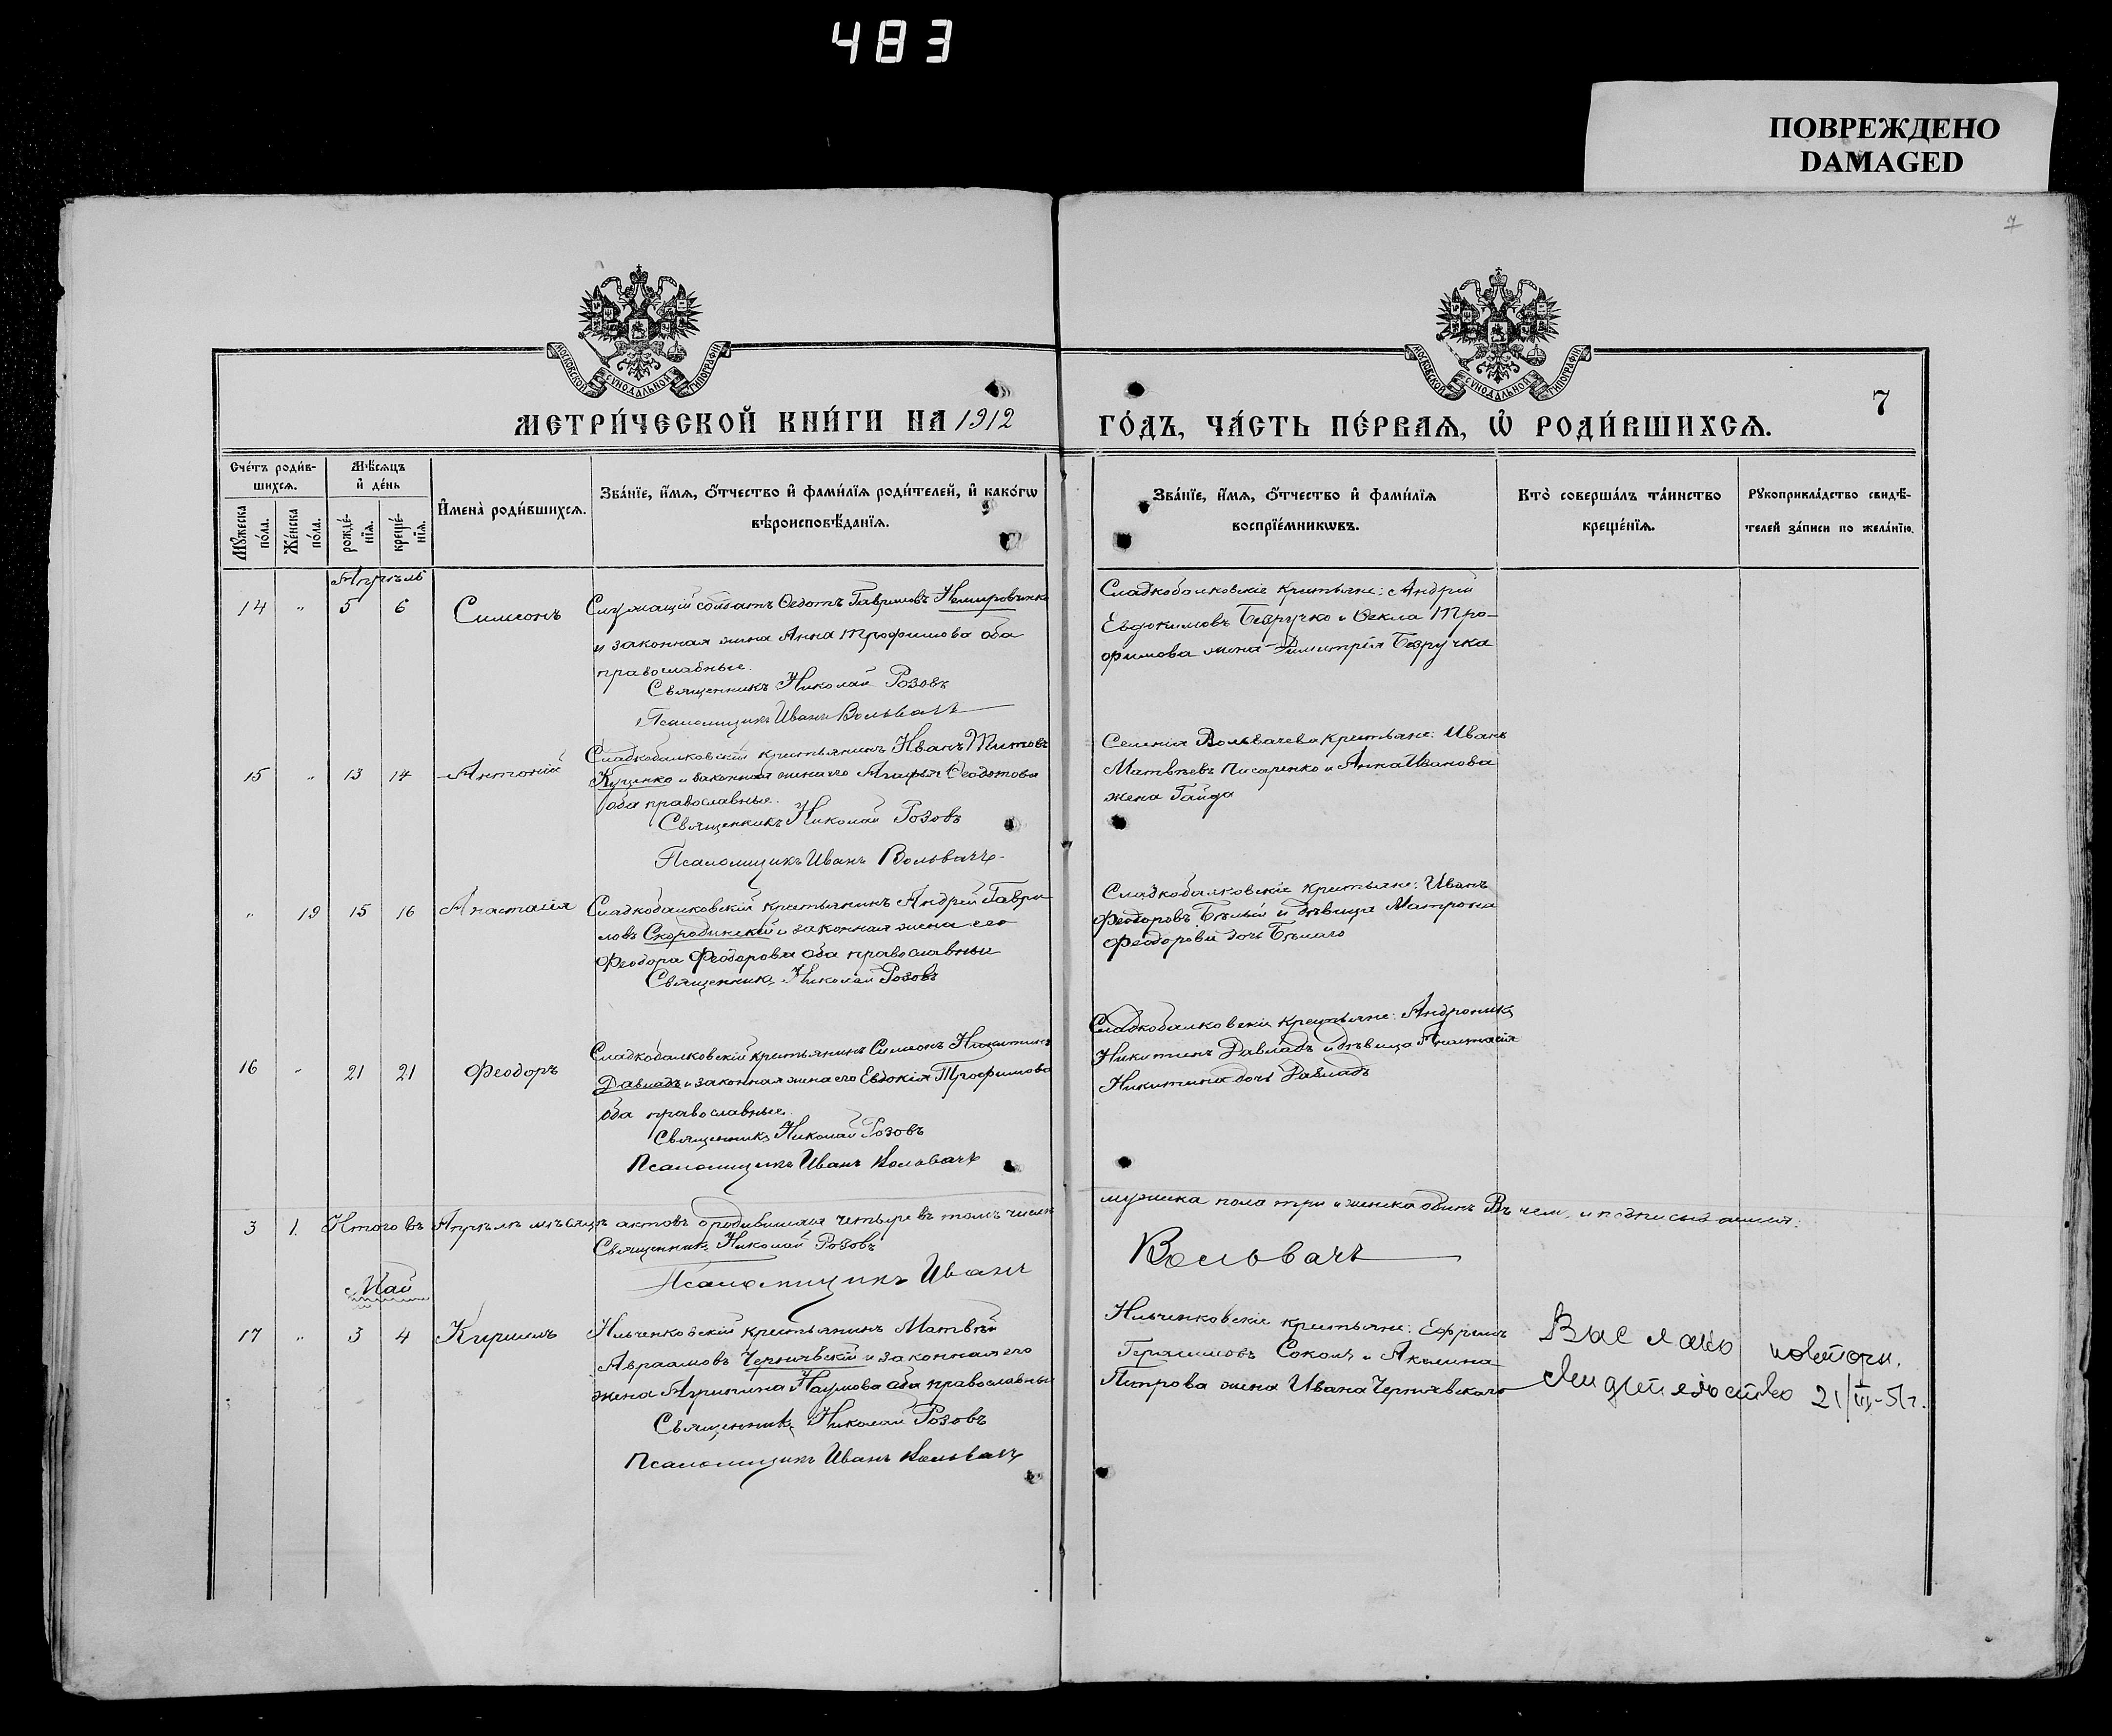 483
ПОВРЕЖДЕНО
DAMAGED
7
МОСКОВСКОЙ СѴНОДАЛЬНОЙ ТИПОГРАФІИ
МОСКОВСКОЙ СѴНОДАЛЬНОЙ ТИПОГРАФІИ
МЕТРИ́ЧЕСКОЙ КНИ́ГИ НА 1912
ГО́ДЪ, ЧА́СТЬ ПЕ́РВАЯ, Ѽ РОДИ́ВШИХСЯ.
7
Сче́тъ роди́в-
шихся.
Мꙋ́жеска по́ла.
Же́нска по́ла.
Мѣ́сяцъ
и҆ де́нь
рожде́-
нїя.
креще́-
нїя.
И҆мена̀ роди́вшихся.
Зва́нїе, и҆́мя, ѻ҆́тчество и҆ фами́лїя роди́телей, и҆ како́гѡ
вѣроисповѣ́данїя.
Зва́нїе, и҆́мя, ѻ҆́тчество и҆ фами́лїя
воспрїе́мникѡвъ.
Кто̀ соверша́лъ та́инство
креще́нїя.
Рꙋкоприкла́дство свидѣ́-
телей за́писи по жела́нїю.
Апрѣль
14 " 5 6 Симеонъ
Служащій солдатъ Ѳедотъ Гавриловъ Немировченко
и законная жена Анна Трофимова оба
православные.
Священникъ Николай Розовъ
Псаломщикъ Иванъ Вольвачъ
Сладкобалковскіе крестьяне: Андрей
Евдокимовъ Безручко и Ѳекла Тро-
фимова жена Димитрія Безручка
15 " 13 14 Антоній
Сладкобалковскій крестьянинъ Иванъ Титовъ
Куценко и законная жена его Агафья Ѳеодотова
оба православные.
Священникъ Николай Розовъ
Псаломщикъ Иванъ Вольвачъ
Селенія Вольвачева крестьяне: Иванъ
Матвѣевъ Писаренко и Анна Иванова
жена Гайда
" 19 15 16 Анастасія
Сладкобалковскій крестьянинъ Андрей Гаври-
ловъ Скоробинскій и законная жена его
Феодора Феодорова оба православные
Священникъ Николай Розовъ
Сладкобалковскіе крестьяне: Иванъ
Феодоровъ Бѣлый и дѣвица Матрона
Феодорова дочь Бѣлаго
16 " 21 21 Феодоръ
Сладкобалковскій крестьянинъ Симеонъ Никитинъ
Давладъ и законная жена его Евдокія Трофимова
оба православные.
Священникъ Николай Розовъ
Псаломщикъ Иванъ Вольвачъ
Сладкобалковскіе крестьяне: Андроникъ
Никитинъ Давладъ и дѣвица Анастасія
Никитина дочь Давладъ
3 1. Итого въ Апрѣлѣ мѣсяцѣ актовъ о родившихся четыре въ томъ числѣ
мужска пола три и женска одинъ Въ чемъ и подписываемся:
Священникъ Николай Розовъ
Псаломщикъ Иванъ
Вольвачъ
Май
17 " 3 4 Кириллъ
Ильченковскій крестьянинъ Матвѣй
Авраамовъ Чернявскій и законная его
жена Агрипина Наумова оба православные
Священникъ Николай Розовъ
Псаломщикъ Иванъ Вольвачъ
Ильченковскіе крестьяне: Ефремъ
Герасимовъ Соколъ и Акилина
Петрова жена Ивана Чернявскаго
Выслано повторн.
21/III-51г.